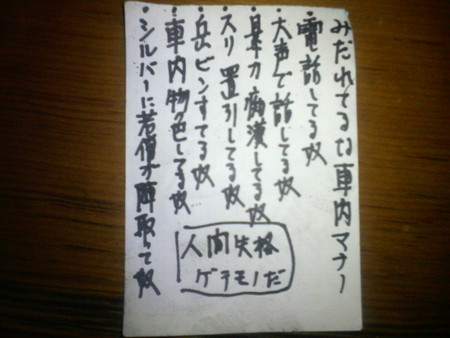 みだれてるな車内マナー
・電話してる奴
・大声で話してる奴
・暴力 痴漢してる奴
・スリ 置引してる奴
・缶ビンすてる奴
・車内物色してる奴
・シルバーに若僧が陣取って奴
人間失格
ゲテモノだ